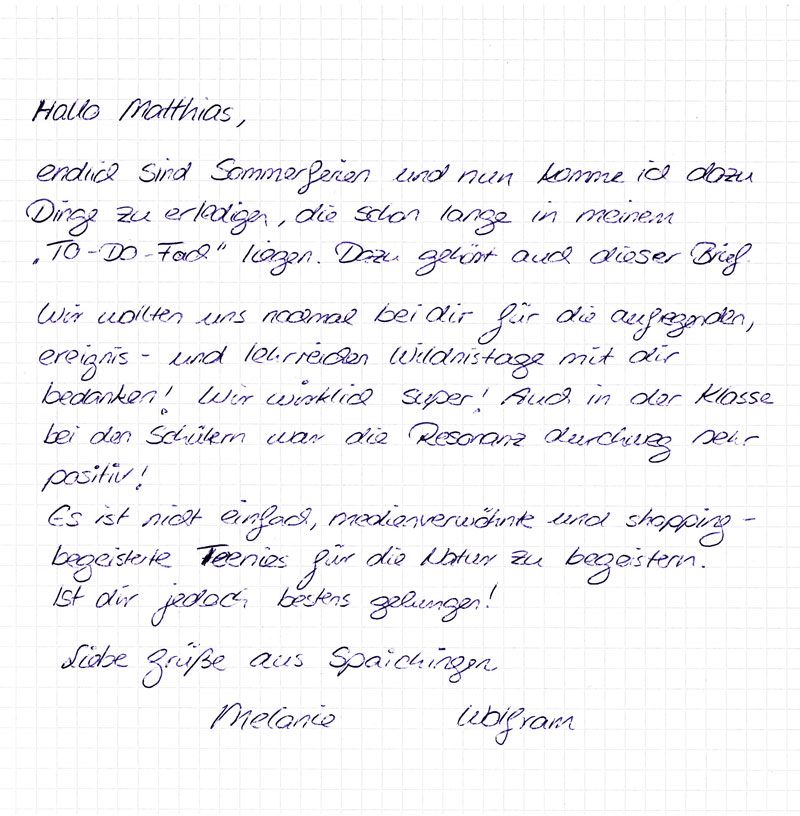 Hallo Matthias,
endlich sind Sommerferien und nun komme ich dazu
Dinge zu erledigen, die schon lange in meinem
„TO-DO-Fach“ liegen. Dazu gehört auch dieser Brief.
Wir wollten uns nochmal bei dir für die aufregenden,
ereignis- und lehrreichen Wildnistage mit dir
bedanken! Wir wirklich super! Auch in der Klasse
bei den Schülern war die Resonanz durchweg sehr
positiv!
Es ist nicht einfach, medienverwöhnte und shopping-
begeisterte Teenies für die Natur zu begeistern.
Ist dir jedoch bestens gelungen!
Liebe Grüße aus Spaichingen
Melanie Wolfram